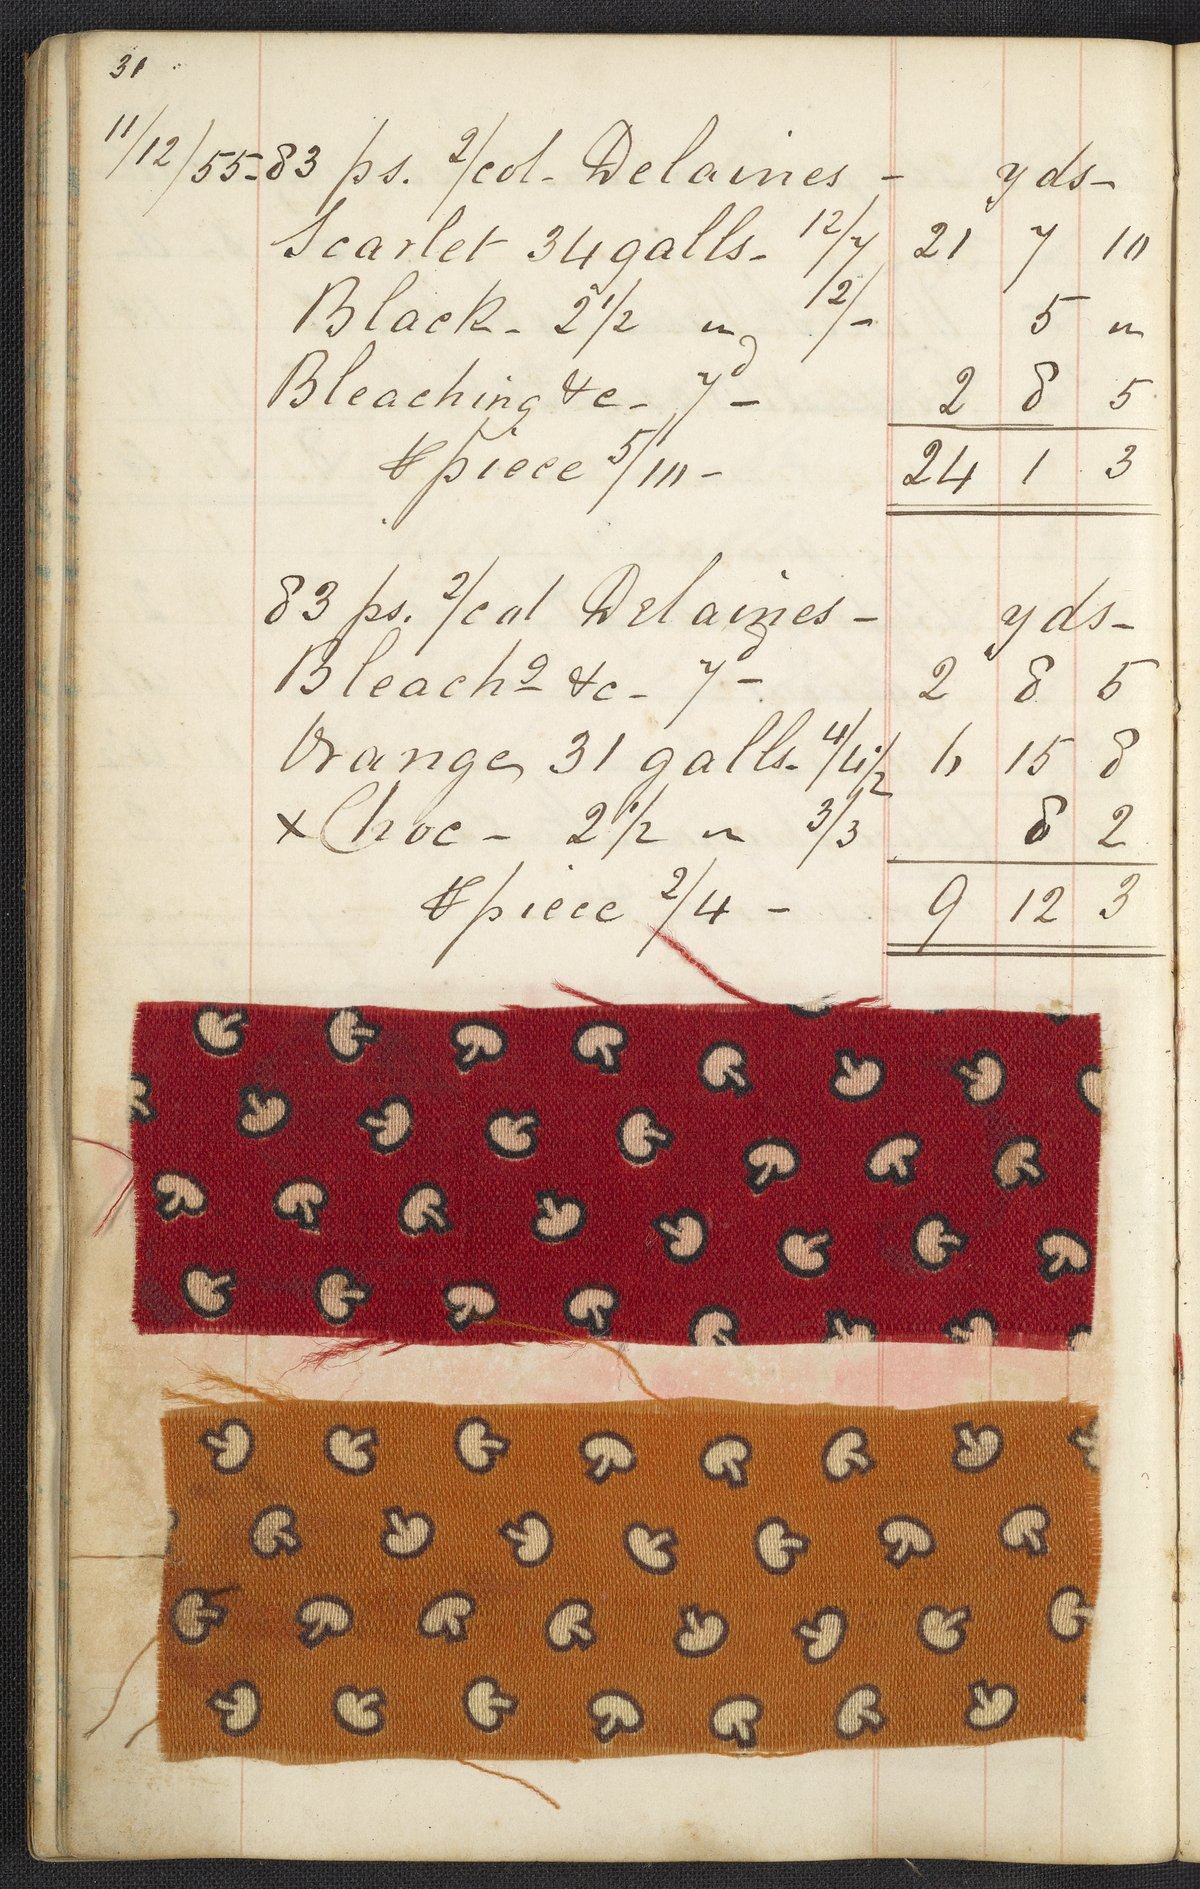 31
11/12/55 - 83 ps. 2/col - Delaines - yds -
Scarlet 34 galls - 12/7 21 7 10
Black - 2 1/2 " 2/- 5 "
Bleaching &c - 7d - 2 8 5
⅌ piece 5/10 - 24 1 3
83 ps. 2/col Delaines - yds -
Bleachg &c - 7d - 2 8 5
Orange 31 galls - 4/4 1/2 6 15 8
x Choc - 2 1/2 " 3/3 8 2
⅌ piece 2/4 - 9 12 3